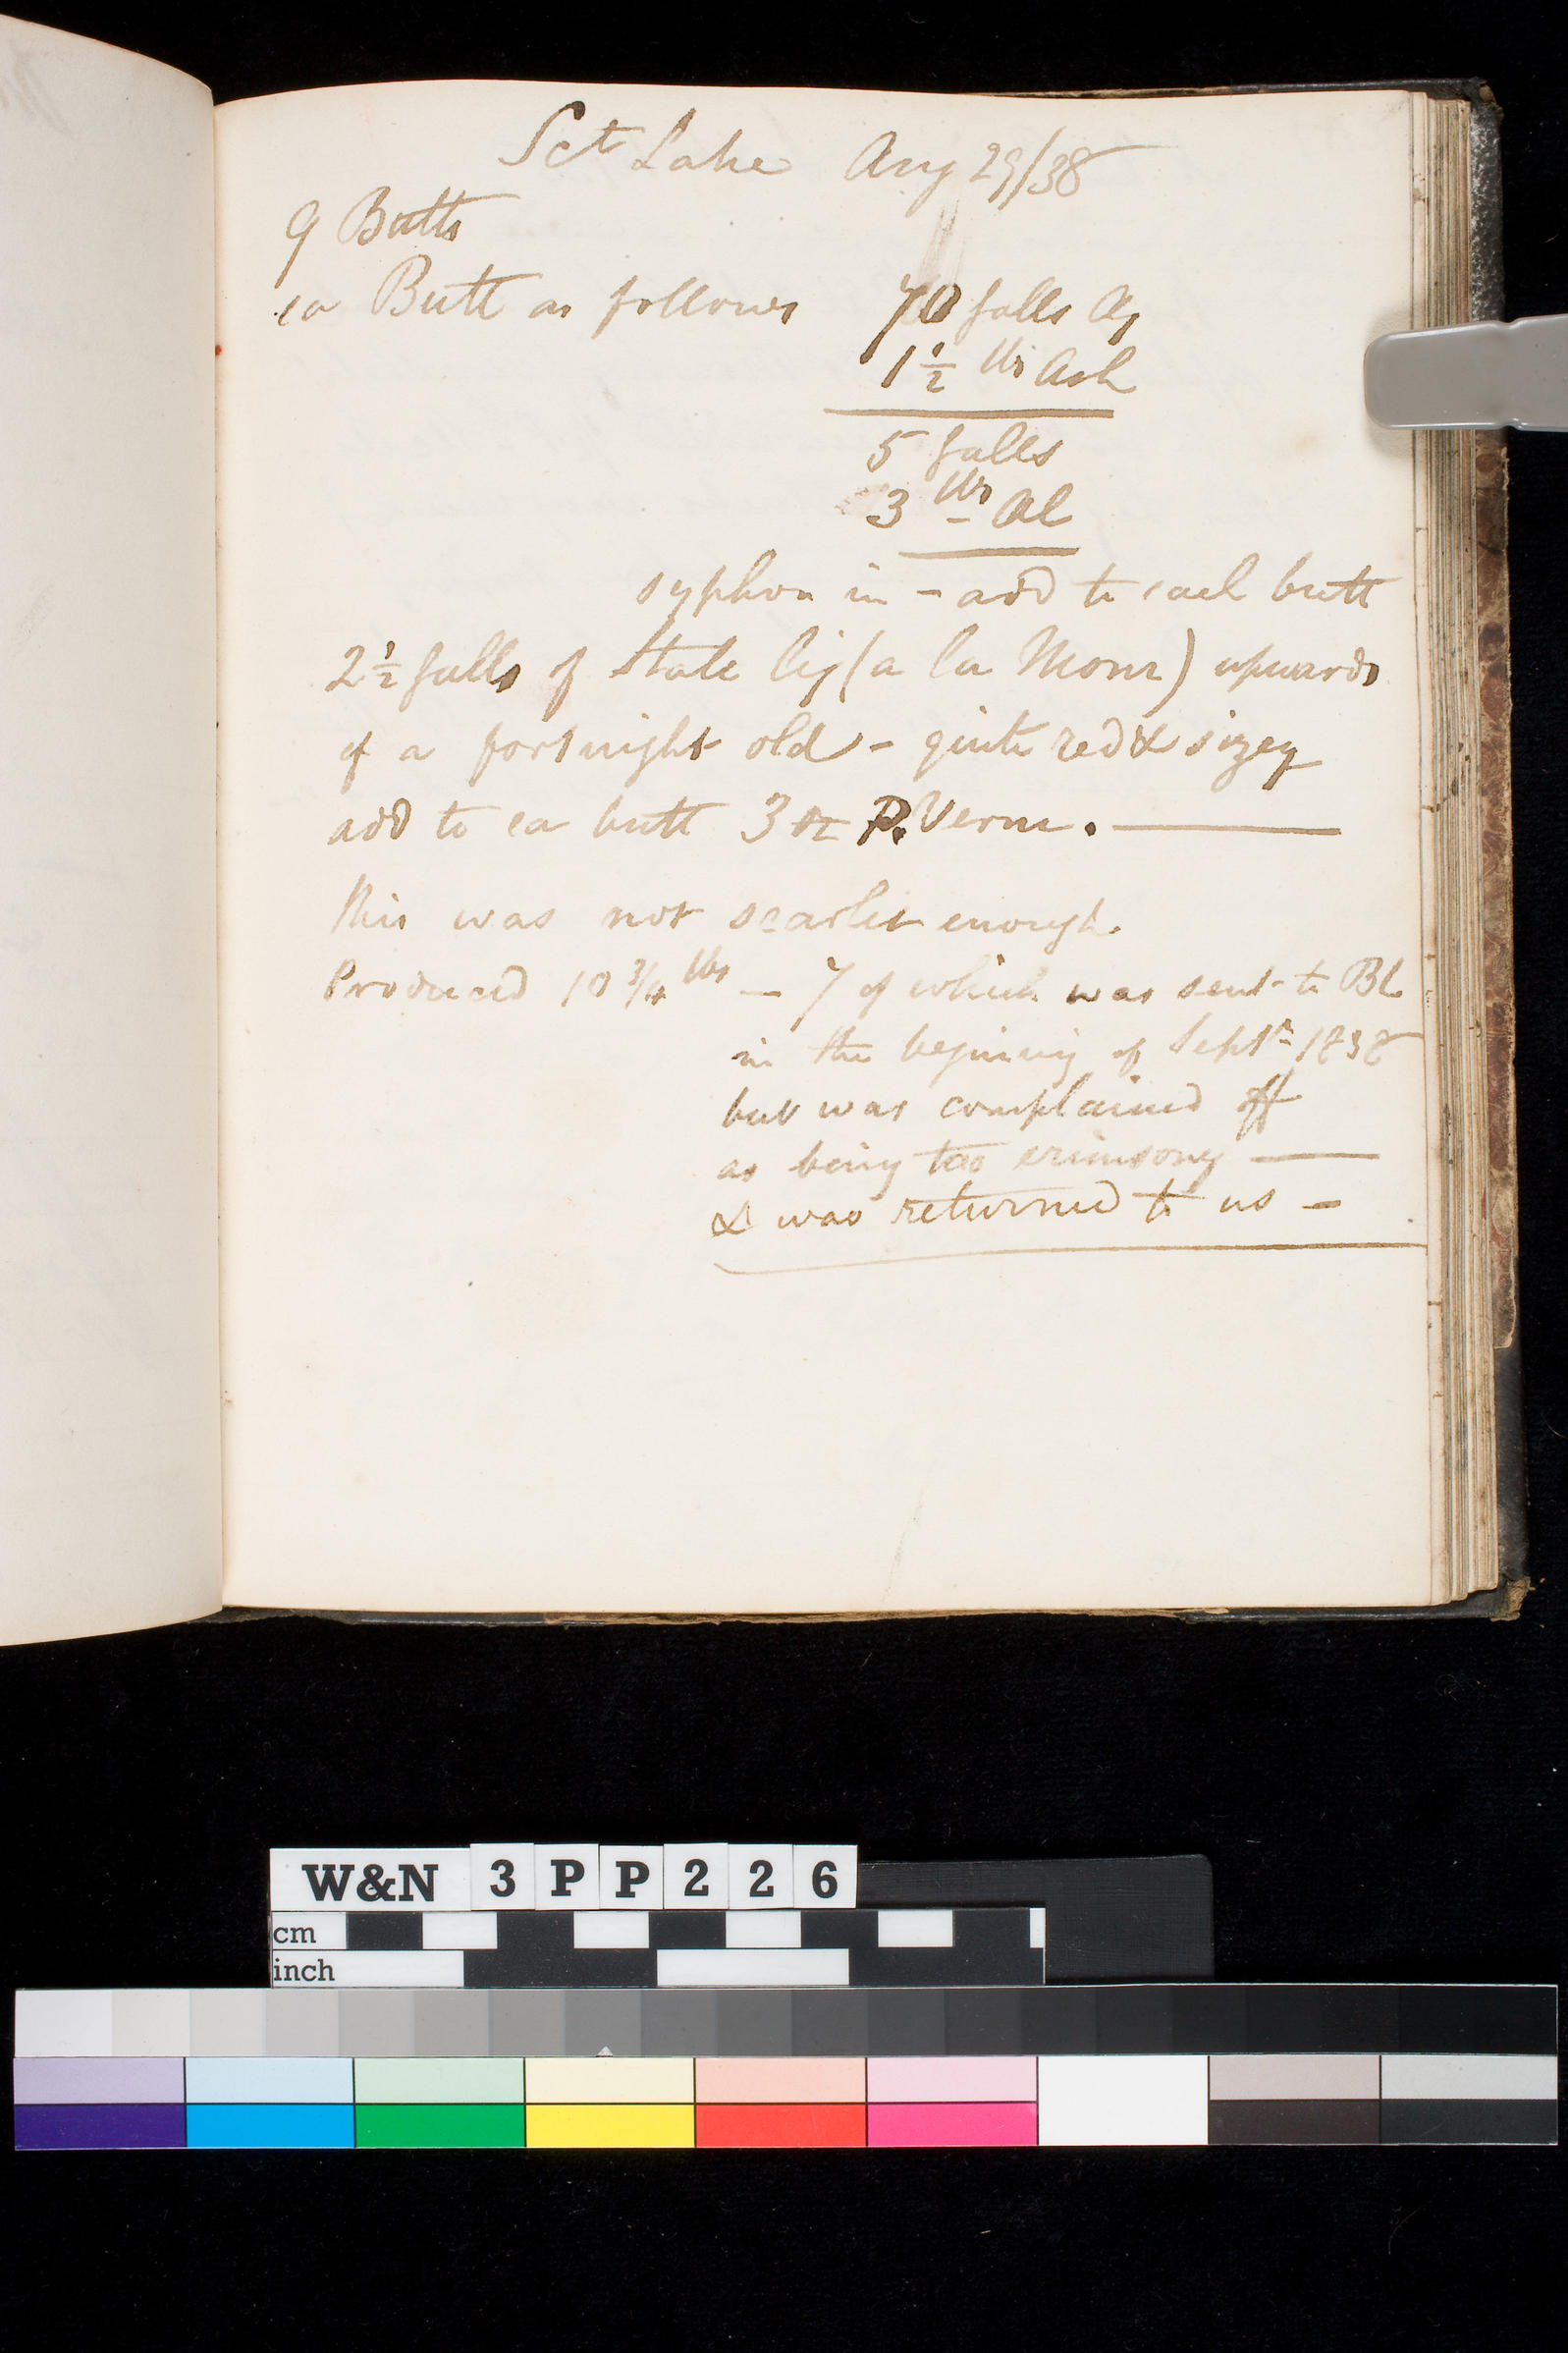 Sct Lake Aug 29/38
9 Butts
ea Butt as follows 70 galls Aq
1 1/2 lbs Ash
5 galls
3 lbs Al
syphon in - add to each butt
2 1/2 galls of Stale liq (a la Monr) upwards
of a fortnight old - quite red & sizey
add to ea butt 3 oz P. Verm.
this was not scarlet enough
Produced 10 3/4 lbs — 7 of which was sent to BL
in the begining of Septr 1838
but was complained off
as being too crimsony —
& was returned to us -
W&N 3PP226
cm
inch